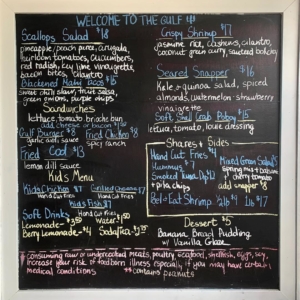 WELCOME TO THE GULF
Scallops Salad $18
pineapple/peach puree, arugula,
heirloom tomatoes, cucumbers,
red radish, key lime vinaigrette,
bacon bites, cilantro
Blackened Mahi Tacos $15
sweet chili slaw, fruit salsa,
green onions, purple chips
Sandwiches
lettuce, tomato brioche bun
add cheese or bacon
Gulf Burger $8
garlic aioli sauce
Fried Chicken $8
spicy ranch
Fried Cod $9
lemon dill sauce
Kids Menu
Kids Chicken $7
Hand Cut Fries
Grilled Cheese
Hand Cut Fries
Kids Fish
Hand Cut Fries
Soft Drinks
Lemonade
Water
Berry Lemonade $4
Soda/Tea
Crispy Shrimp $17
jasmine rice, cashews, cilantro,
coconut green curry, sauteed bokchoy
Seared Snapper $16
Kale & quinoa salad, spiced
almonds, watermelon-strawberry
vinaigrette
Soft Shell Crab Poboy $15
lettuce, tomato, louie dressing
Shares + Sides
Hand Cut Fries
Hummus $7
Smoked Tuna Dip
+ pita chips
Mixed Green Salad
spring mix + balsamic
+ cherry tomato
add snapper $8
Peel+Eat Shrimp 1/2lb 1lb $17
Dessert $5
Banana Bread Pudding
w/ Vanilla Glaze
*consuming raw or undercooked meats, poultry, seafood, shellfish, eggs, may
increase your risk of foodborn illness especially if you may have certain
medical conditions
**contains peanuts